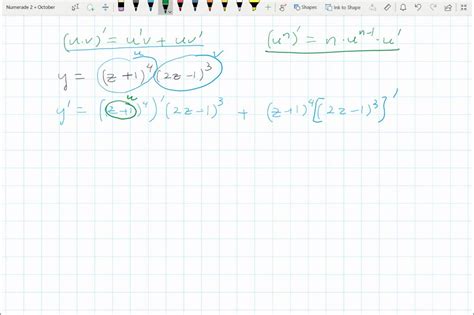 Numerade 2 • October
Shapes Ink to Shape
(u·v)' = u'v + uv' (uⁿ)' = n·uⁿ⁻¹·u'
u v
y = (z+1)⁴ (2z-1)³
u
y' = ((z+1)⁴)' (2z-1)³ + (z+1)⁴[(2z-1)³]'